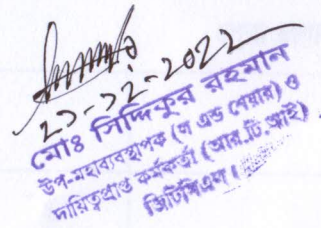 ২১-১২-2022
মোঃ সিদ্দিকুর রহমান
উপ-মহাব্যবস্থাপক (ল এন্ড শেয়ার) ও
দায়িত্বপ্রাপ্ত কর্মকর্তা (আর.টি.আই)
জিটিসিএল।